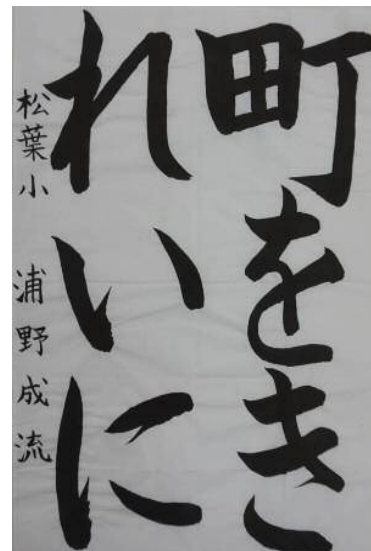 町をき
れいに
松葉小 浦野成流